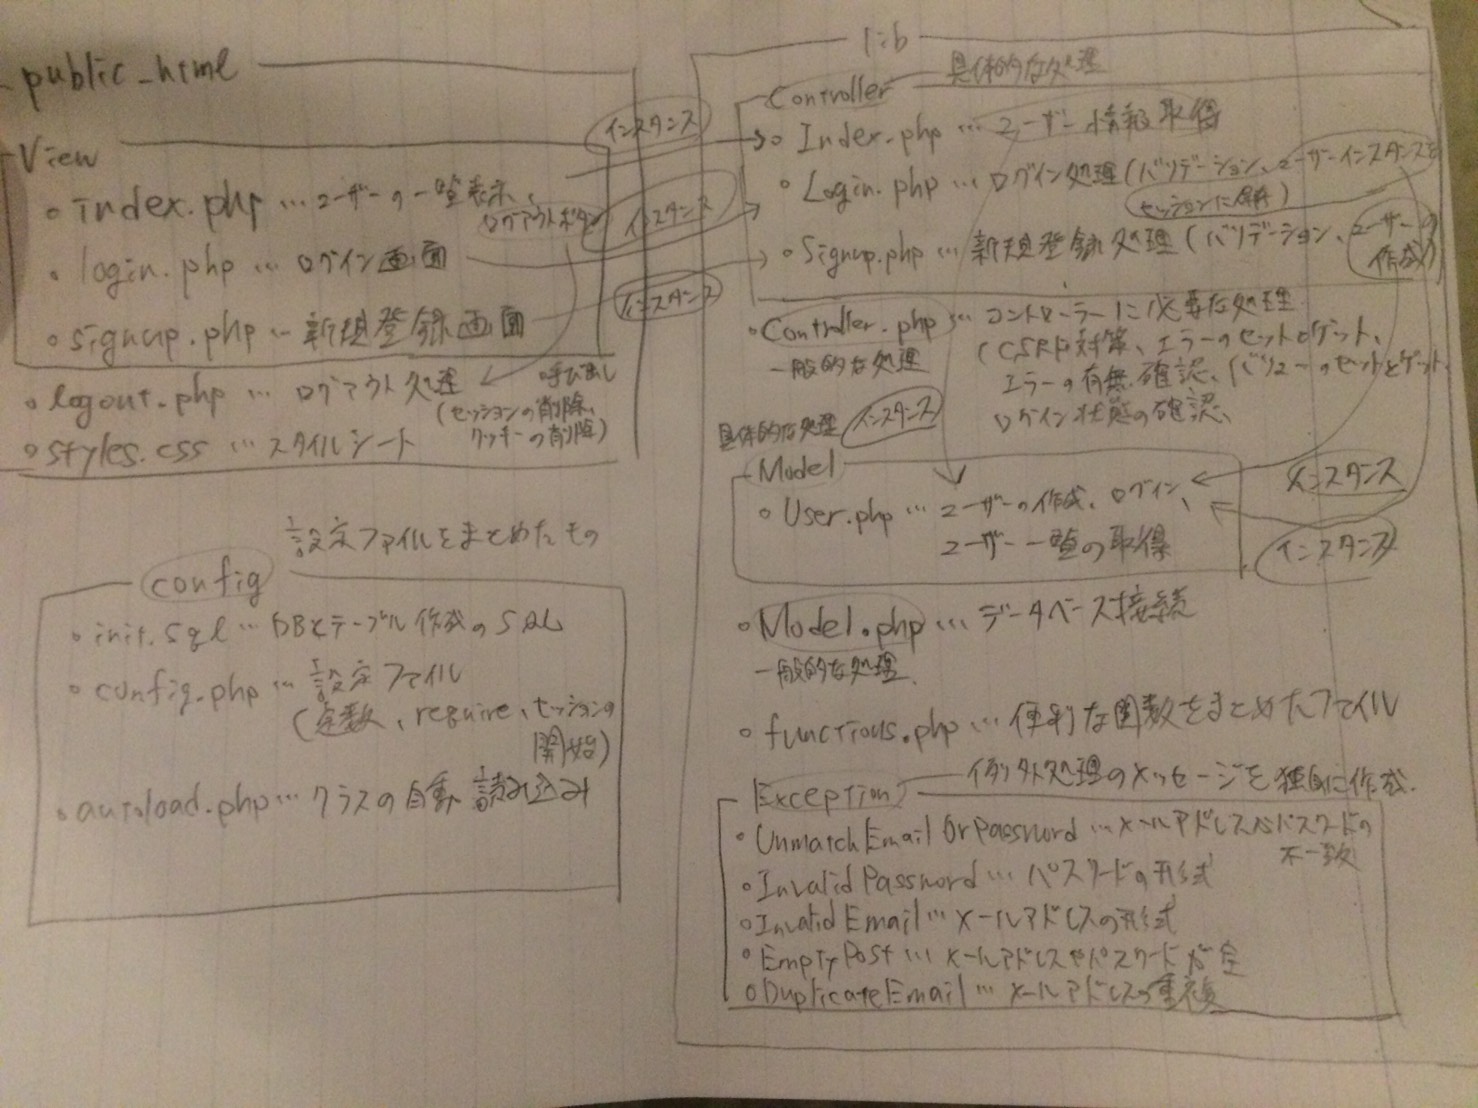 public_html
View
・index.php … ユーザーの一覧表示、
ログアウトボタン
・login.php … ログイン画面
・signup.php … 新規登録画面
・logout.php … ログアウト処理
呼び出し
(セッションの削除、
クッキーの削除)
・styles.css … スタイルシート
インスタンス
インスタンス
インスタンス
設定ファイルをまとめたもの
config
・init.sql … DBとテーブル作成のSQL
・config.php … 設定ファイル
(定数、require、セッションの
開始)
・autoload.php … クラスの自動読み込み
lib
Controller
具体的な処理
・Index.php … ユーザー情報取得
・Login.php … ログイン処理(バリデーション、ユーザーインスタンスを
セッションに保存)
・Signup.php … 新規登録処理(バリデーション、ユーザーの
作成)
・Controller.php … コントローラーに必要な処理
一般的な処理
(CSRF対策、エラーのセットとゲット、
エラーの有無確認、バリューのセットとゲット、
ログイン状態の確認、
具体的な処理
インスタンス
Model
・User.php … ユーザーの作成、ログイン、
ユーザー一覧の取得
インスタンス
インスタンス
・Model.php … データベース接続
一般的な処理
・functions.php … 便利な関数をまとめたファイル
Exception
例外処理のメッセージを独自に作成.
・UnmatchEmailOrPassword … メールアドレスかパスワードの
不一致
・InvalidPassword … パスワードの形式
・InvalidEmail … メールアドレスの形式
・EmptyPost … メールアドレスやパスワードが空
・DuplicateEmail … メールアドレスの重複